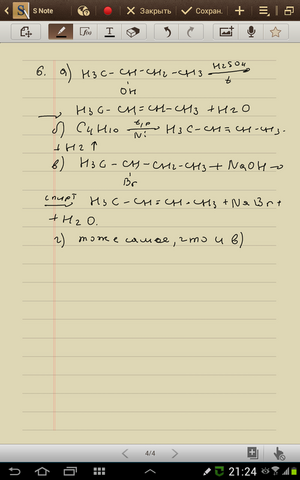 S Note
Закрыть
Сохран.
6. а) H3C-CH-CH2-CH3 H2SO4
OH t
→ H3C-CH=CH-CH3 + H2O
б) C4H10 t,p H3C-CH=CH-CH3.
Ni
+ H2 ↑
в) H3C-CH-CH2-CH3 + NaOH →
Br
спирт H3C-CH=CH-CH3 + NaBr +
+ H2O.
г) тоже самое, что и в)
4/4
21:24